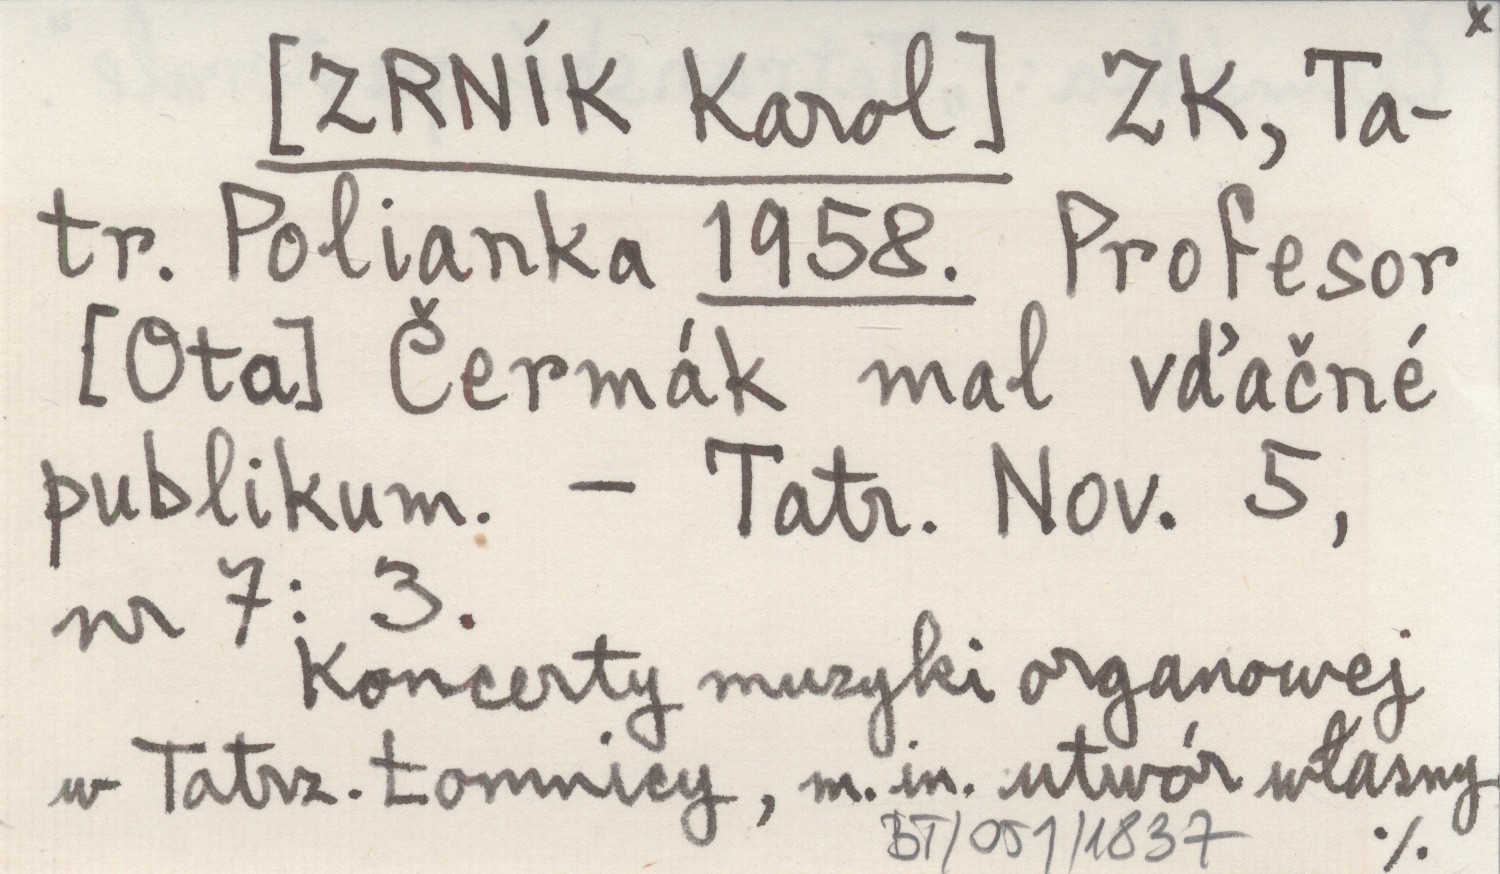 x
[ZRNÍK Karol] ZK, Ta-
tr. Polianka 1958. Profesor
[Ota] Čermák mal vďačné
publikum. – Tatr. Nov. 5,
nr 7: 3.
Koncerty muzyki organowej
w Tatrz. Łomnicy, m.in. utwór własny
BT/051/1837 ·/.